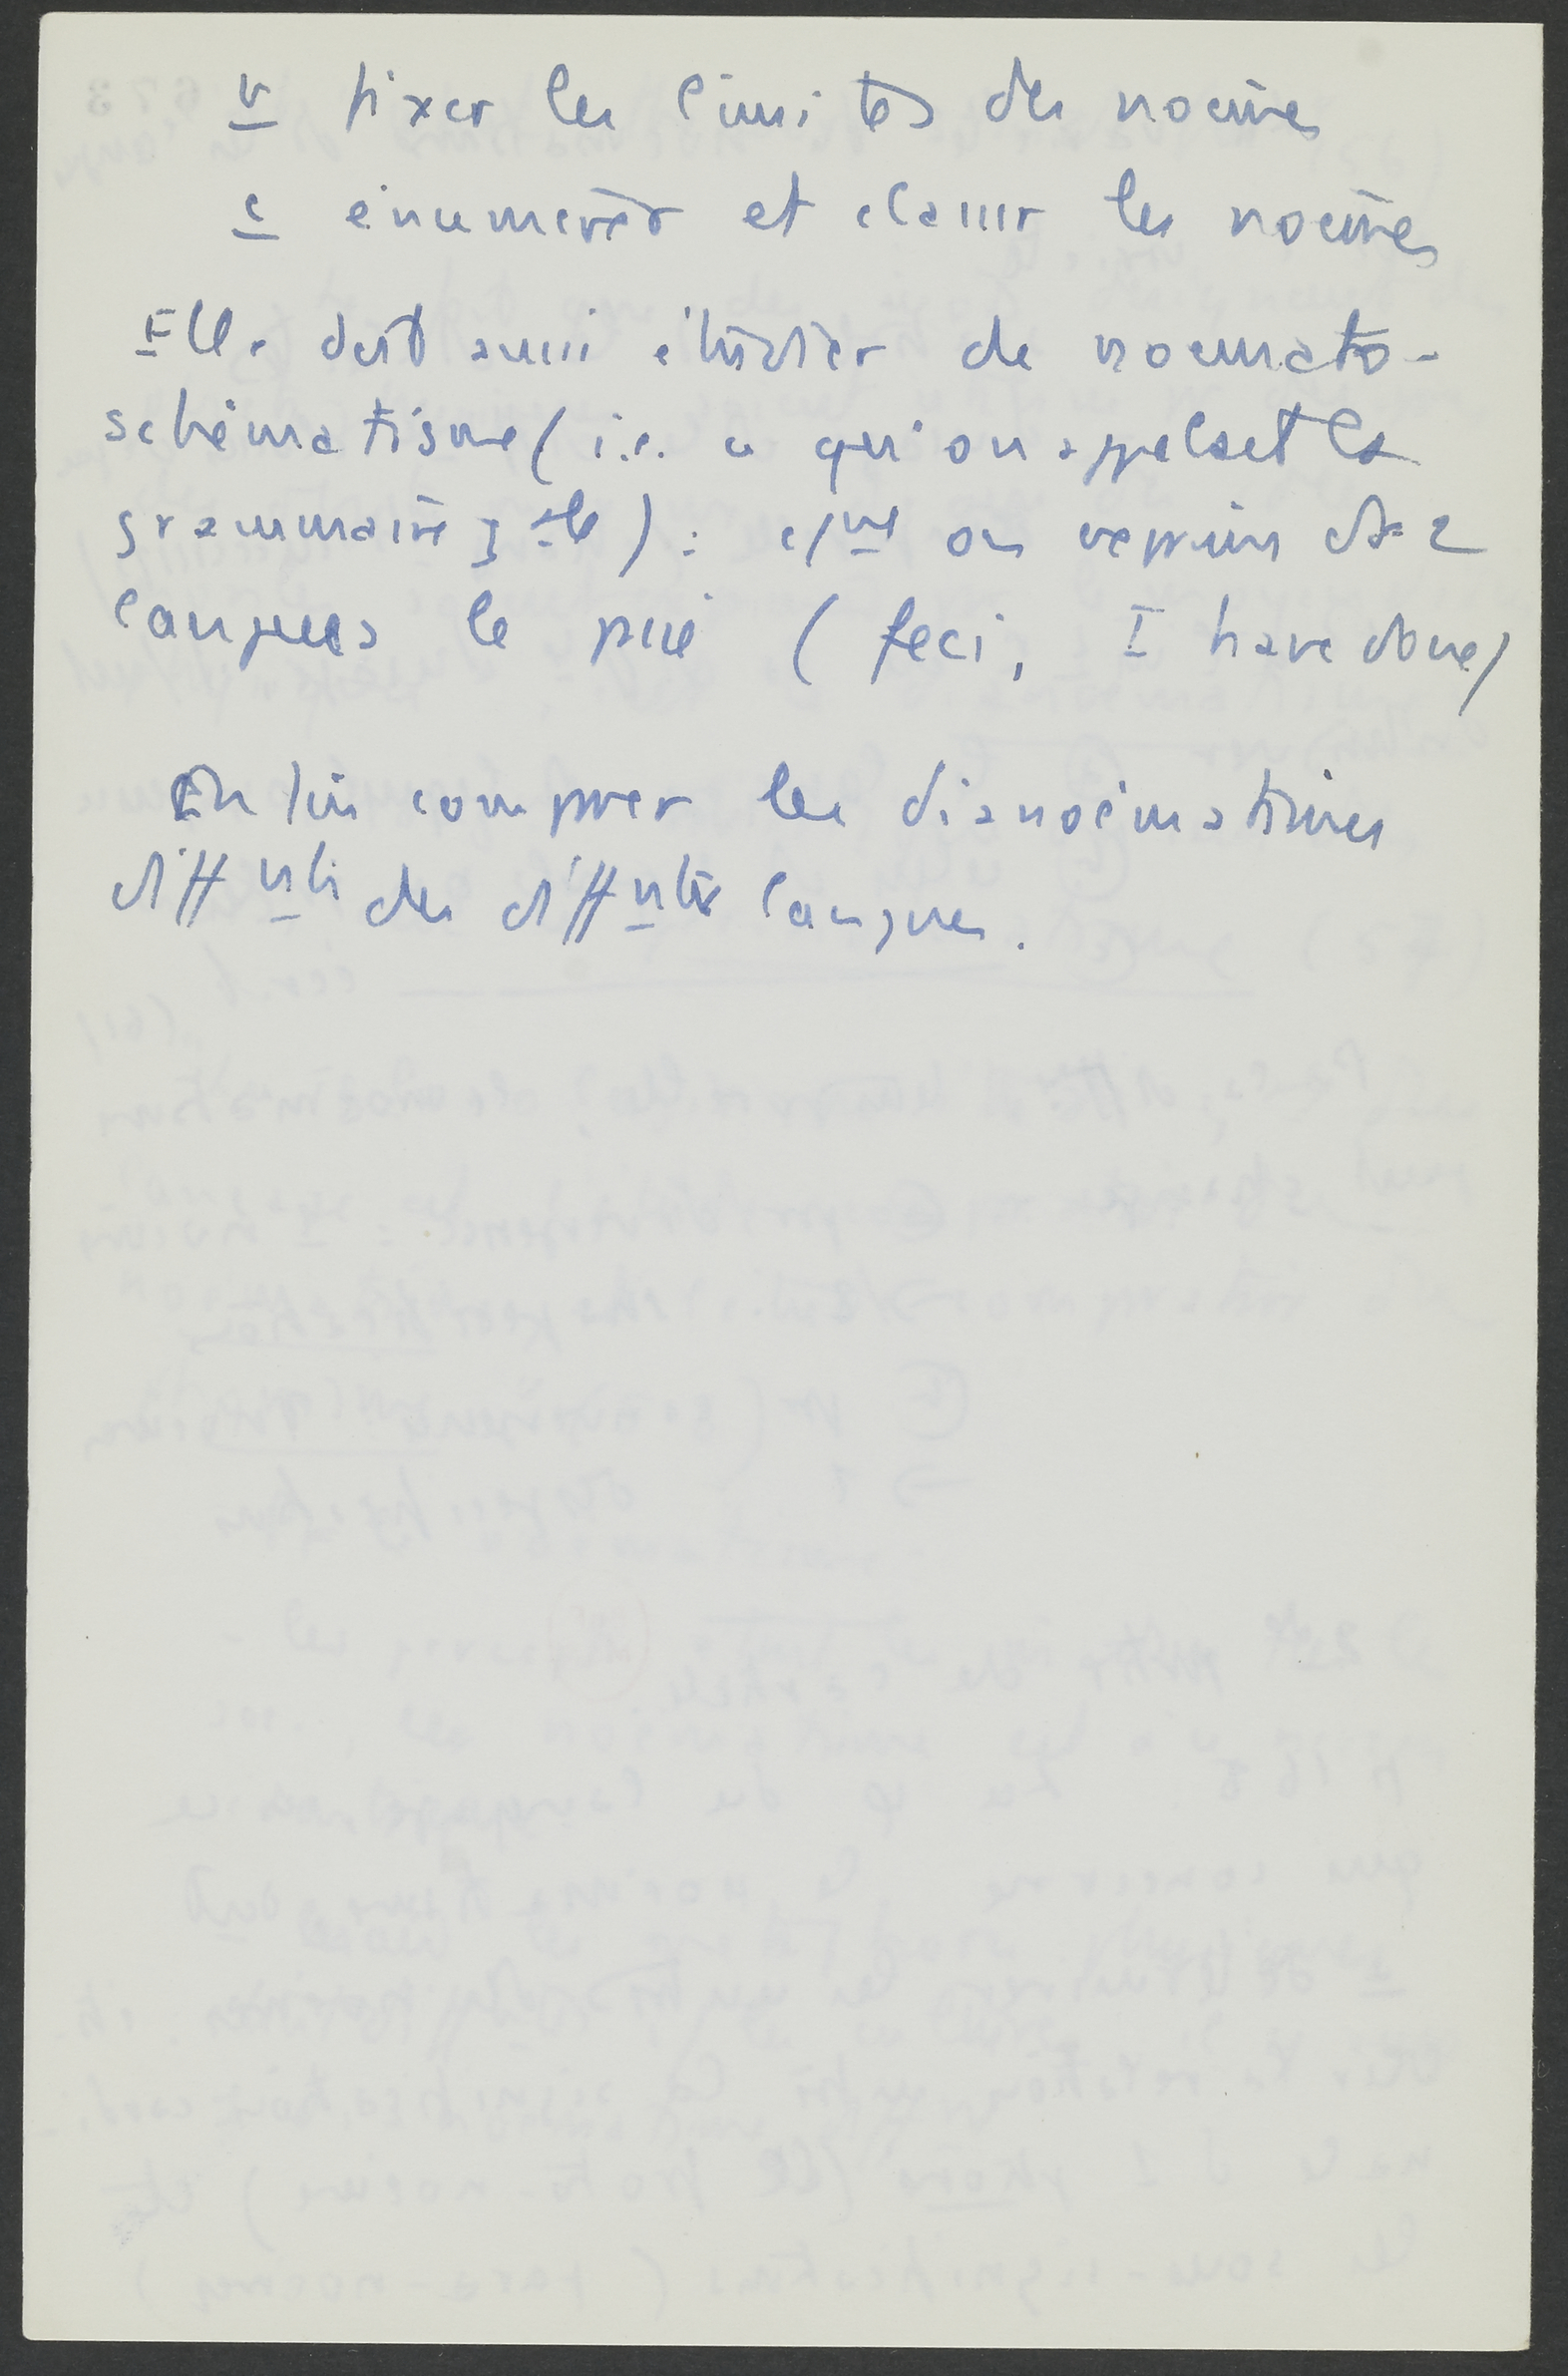 b fixer les limites des noèmes
c énumérer et classer les noèmes
Elle doit aussi étudier le noemato-
schématisme (i.e. ce qu'on appelait la
grammaire gale) : cme on exprime ds 2
langues le passé (feci, I have done)
Enfin comparer les dianoématismes
diffnts des diffntes langues.